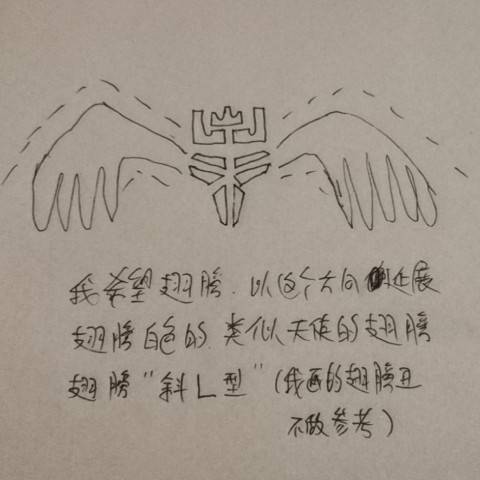 我希望翅膀.以这个方向延展
翅膀白色的.类似天使的翅膀
翅膀"斜L型"(我画的翅膀丑
不做参考)